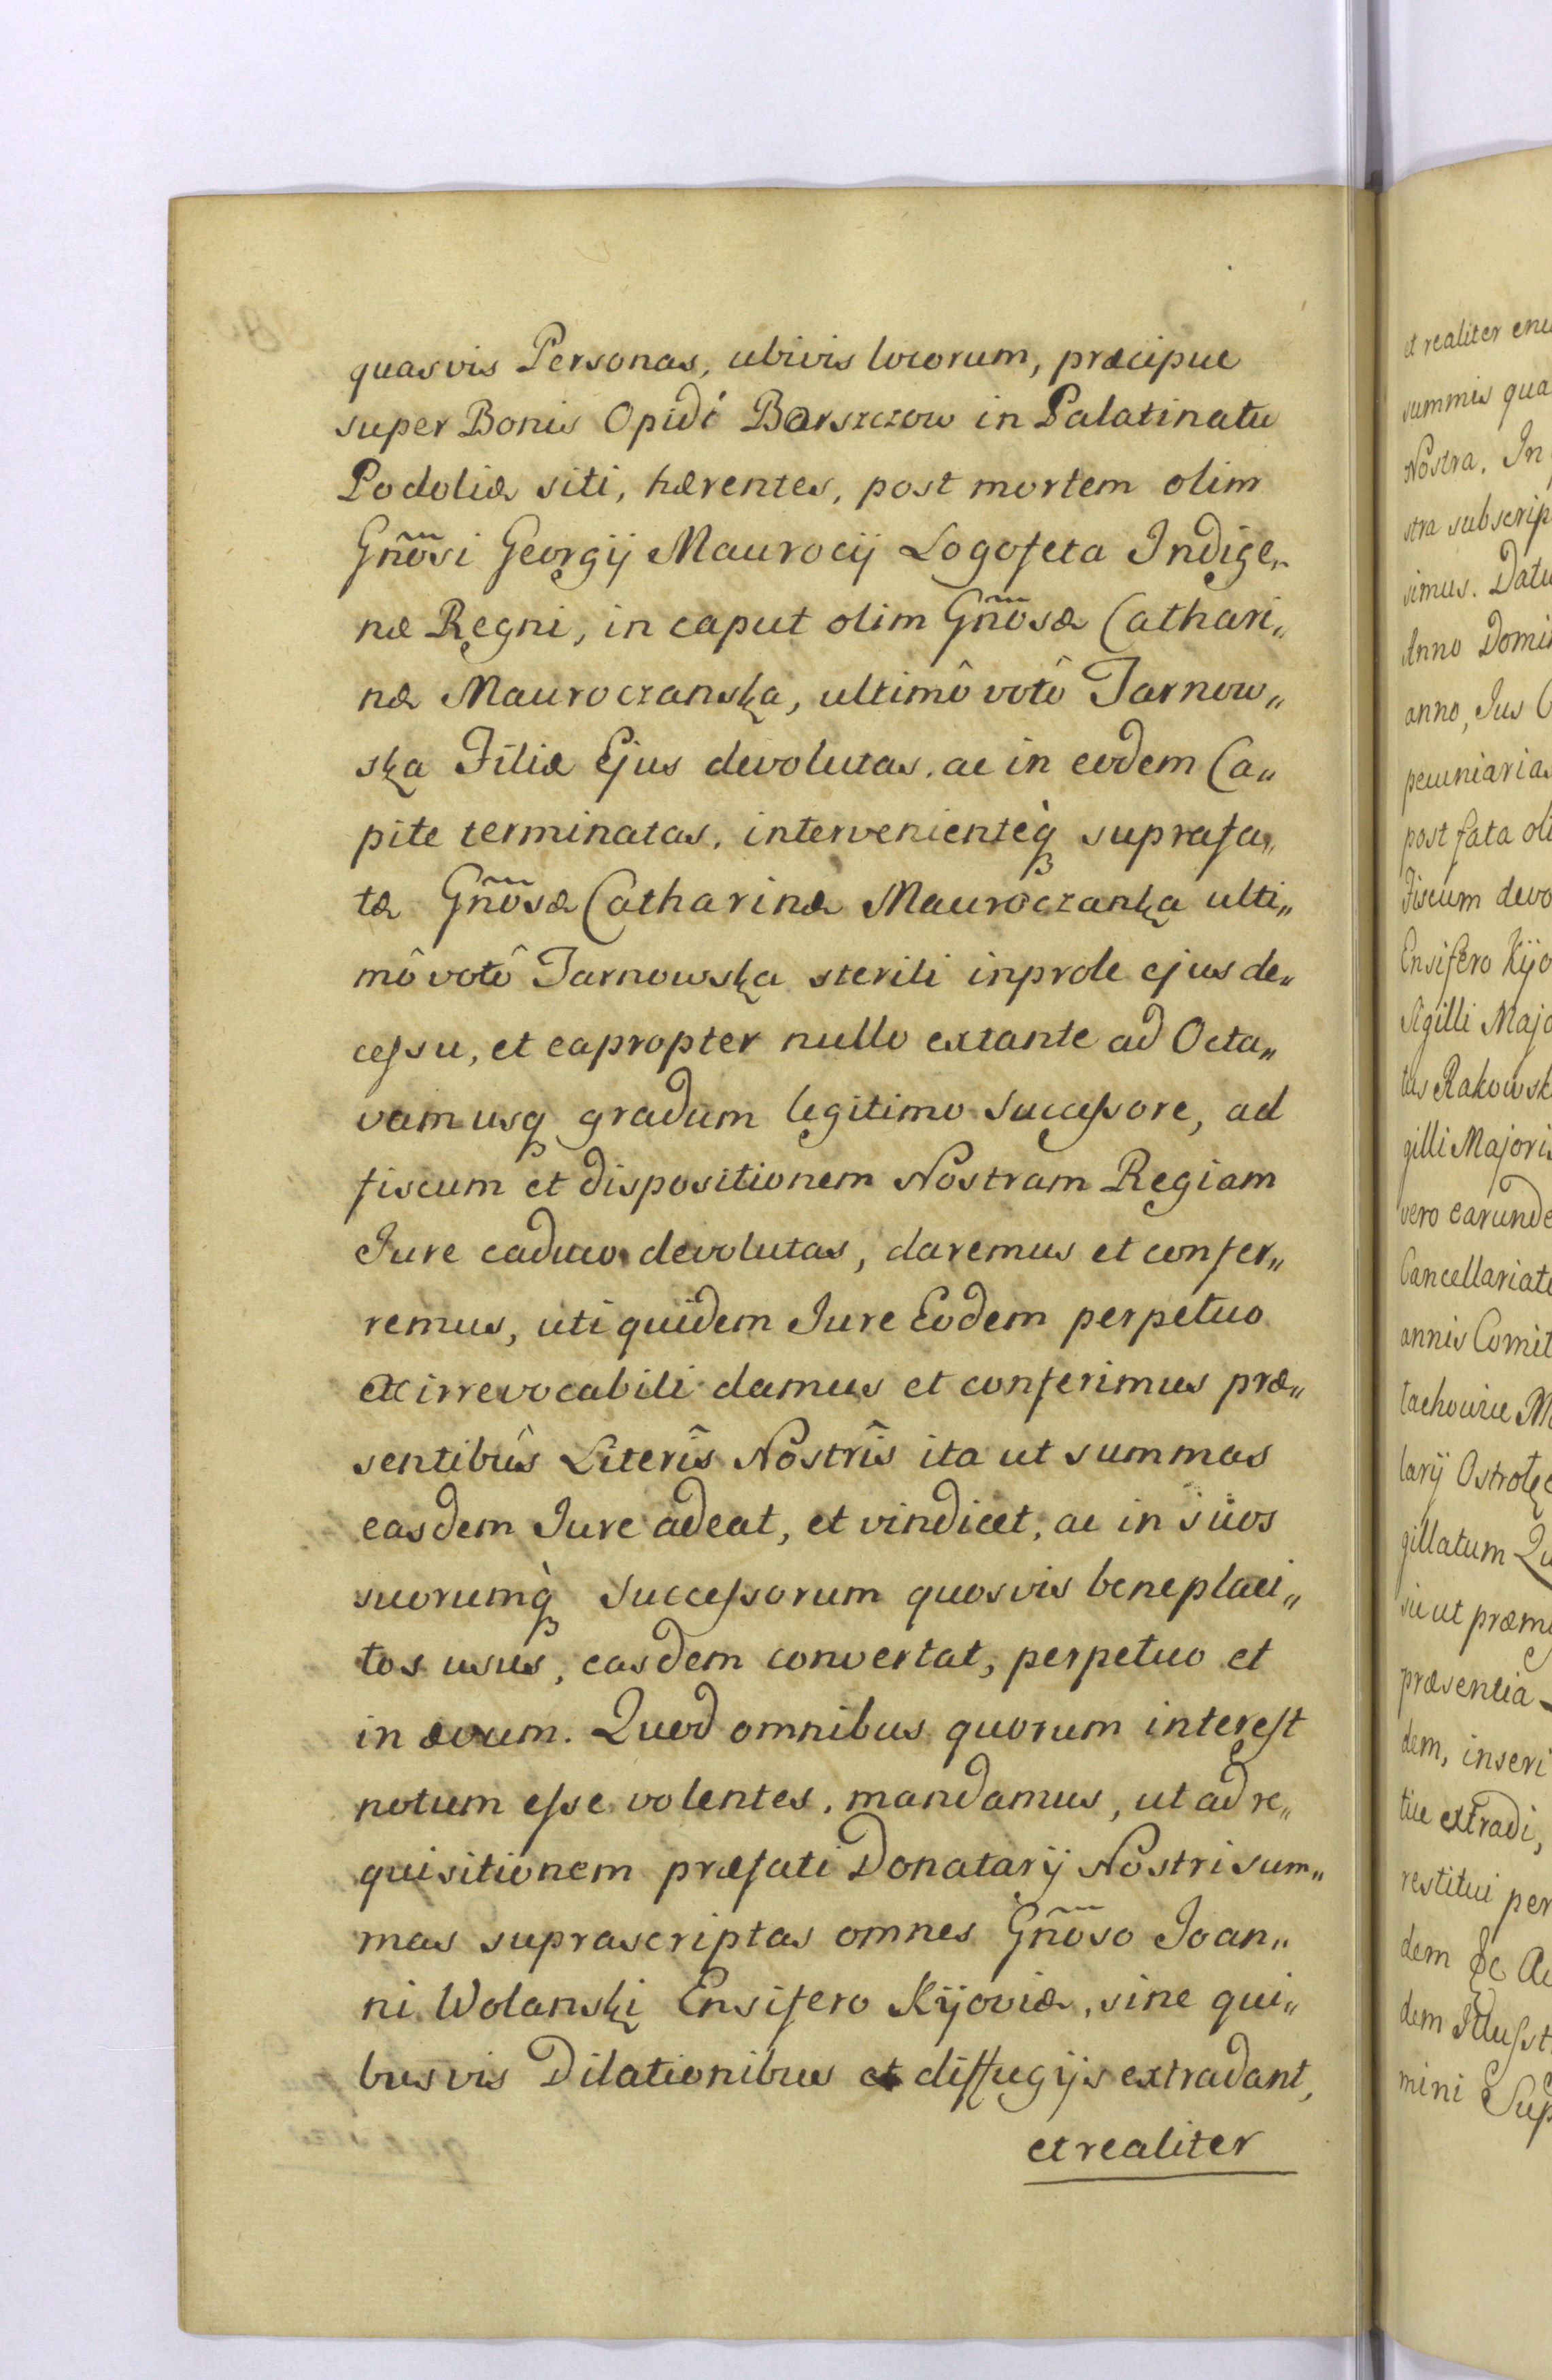 quasvis Personas, ubivis locorum, præcipue
super Bonis Opidi Barszczow in Palatinatu
Podoliæ siti, hærentes, post mortem olim
Gñosi Georgij Maurocij Logofeta Indige„
næ Regni, in caput olim Gñosæ Cathari„
næ Mauroczanska, ultimô votô Tarnow„
ska Filiæ Ejus devolutas, ac in eodem Ca„
pite terminatas, intervenienteq̀ suprafa„
tæ Gñosæ Catharinæ Mauroczanka ulti„
mô votô Tarnowska sterili inprole ejus de„
cessu, et eapropter nullo extante ad Octa„
vam usq gradum legitimo Successore, ad
fiscum et dispositionem Nostram Regiam
Jure caduco devolutas, daremus et confer„
remus, uti quidem Jure Eodem perpetuo
et irrevocabili damus et conferimus præ„
sentibûs Literîs Nostrîs ita ut summas
easdem Jure adeat, et vindicet, ac in suos
suorumq̀ Successorum quosvis beneplaci„
tos usus, easdem convertat, perpetuo et
in ævum. Quod omnibus quorum interest
notum esse volentes, mandamus, ut ad re„
quisitionem præfati Donatarij Nostri sum„
mas suprascriptas omnes Gñoso Joan„
ni Wolanski Ensifero Kijoviæ, sine qui„
busvis Dilationibus et diffugijs extradant,
et realiter
et realiter
summis
Nostra. In
stra
simus.
Anno
anno, Jus
pecuniarias
post fata
Fiscum
Ensifero
Sigilli
tus
gilli Majoris
vero
annis
gillatum
sic ut
præsentia
dem, inseri
extradi,
restitui per
dem
dem
mini